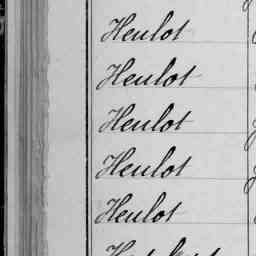 Heulot
Heulot
Heulot
Heulot
Heulot